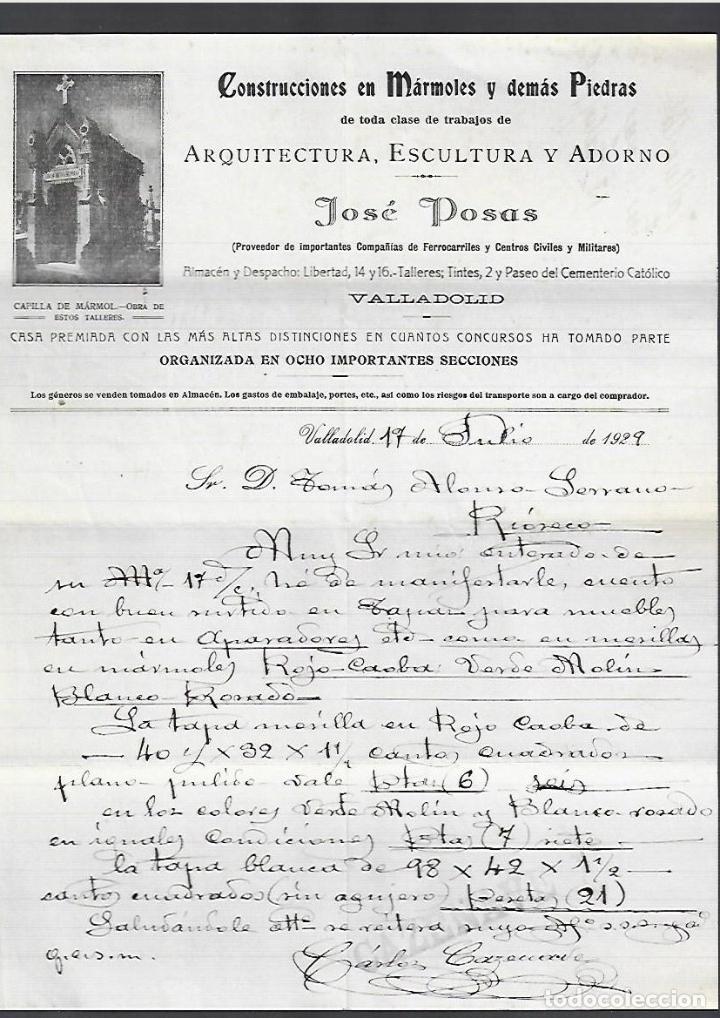 Construcciones en Mármoles y demás Piedras
de toda clase de trabajos de
ARQUITECTURA, ESCULTURA Y ADORNO
José Posas
(Proveedor de importantes Compañías de Ferrocarriles y Centros Civiles y Militares)
Almacén y Despacho: Libertad, 14 y 16.-Talleres; Tintes, 2 y Paseo del Cementerio Católico
VALLADOLID
CAPILLA DE MÁRMOL.—OBRA DE
ESTOS TALLERES.
CASA PREMIADA CON LAS MÁS ALTAS DISTINCIONES EN CUANTOS CONCURSOS HA TOMADO PARTE
ORGANIZADA EN OCHO IMPORTANTES SECCIONES
Los géneros se venden tomados en Almacén. Los gastos de embalaje, portes, etc., así como los riesgos del transporte son a cargo del comprador.
Valladolid 17 de Julio de 1929
Sr. D. Tomás Alonso Serrano
Rioseco
Muy Sr mio: enterado de
su 17 d/c, hé de manifestarle, cuento
con buen surtido en Tapas para muebles
tanto en Aparadores etc como en mesillas
en mármoles Rojo Caoba Verde Molin
Blanco Rosado
La tapa mesilla en Rojo Caoba de
40 x 32 x 1 1/2 cantos cuadrados
plano pulido vale ptas (6) seis
en los colores Verde Molin y Blanco rosado
en iguales condiciones ptas (7) siete
la tapa blanca de 98 x 42 x 1 1/2
cantos cuadrados (sin agujero) Pesetas (21)
Saludándole att° se reitera suyo af° s.s.
q.e.s.m.
Carlos Cazenave
todocoleccion